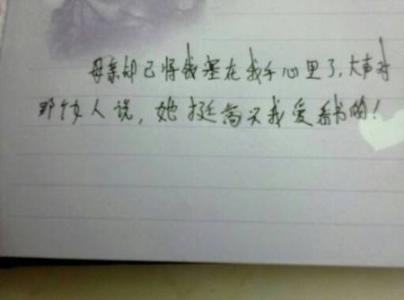 母亲却已将钱塞在我手心里了,大声对
那个女人说,她挺高兴我爱看书的!